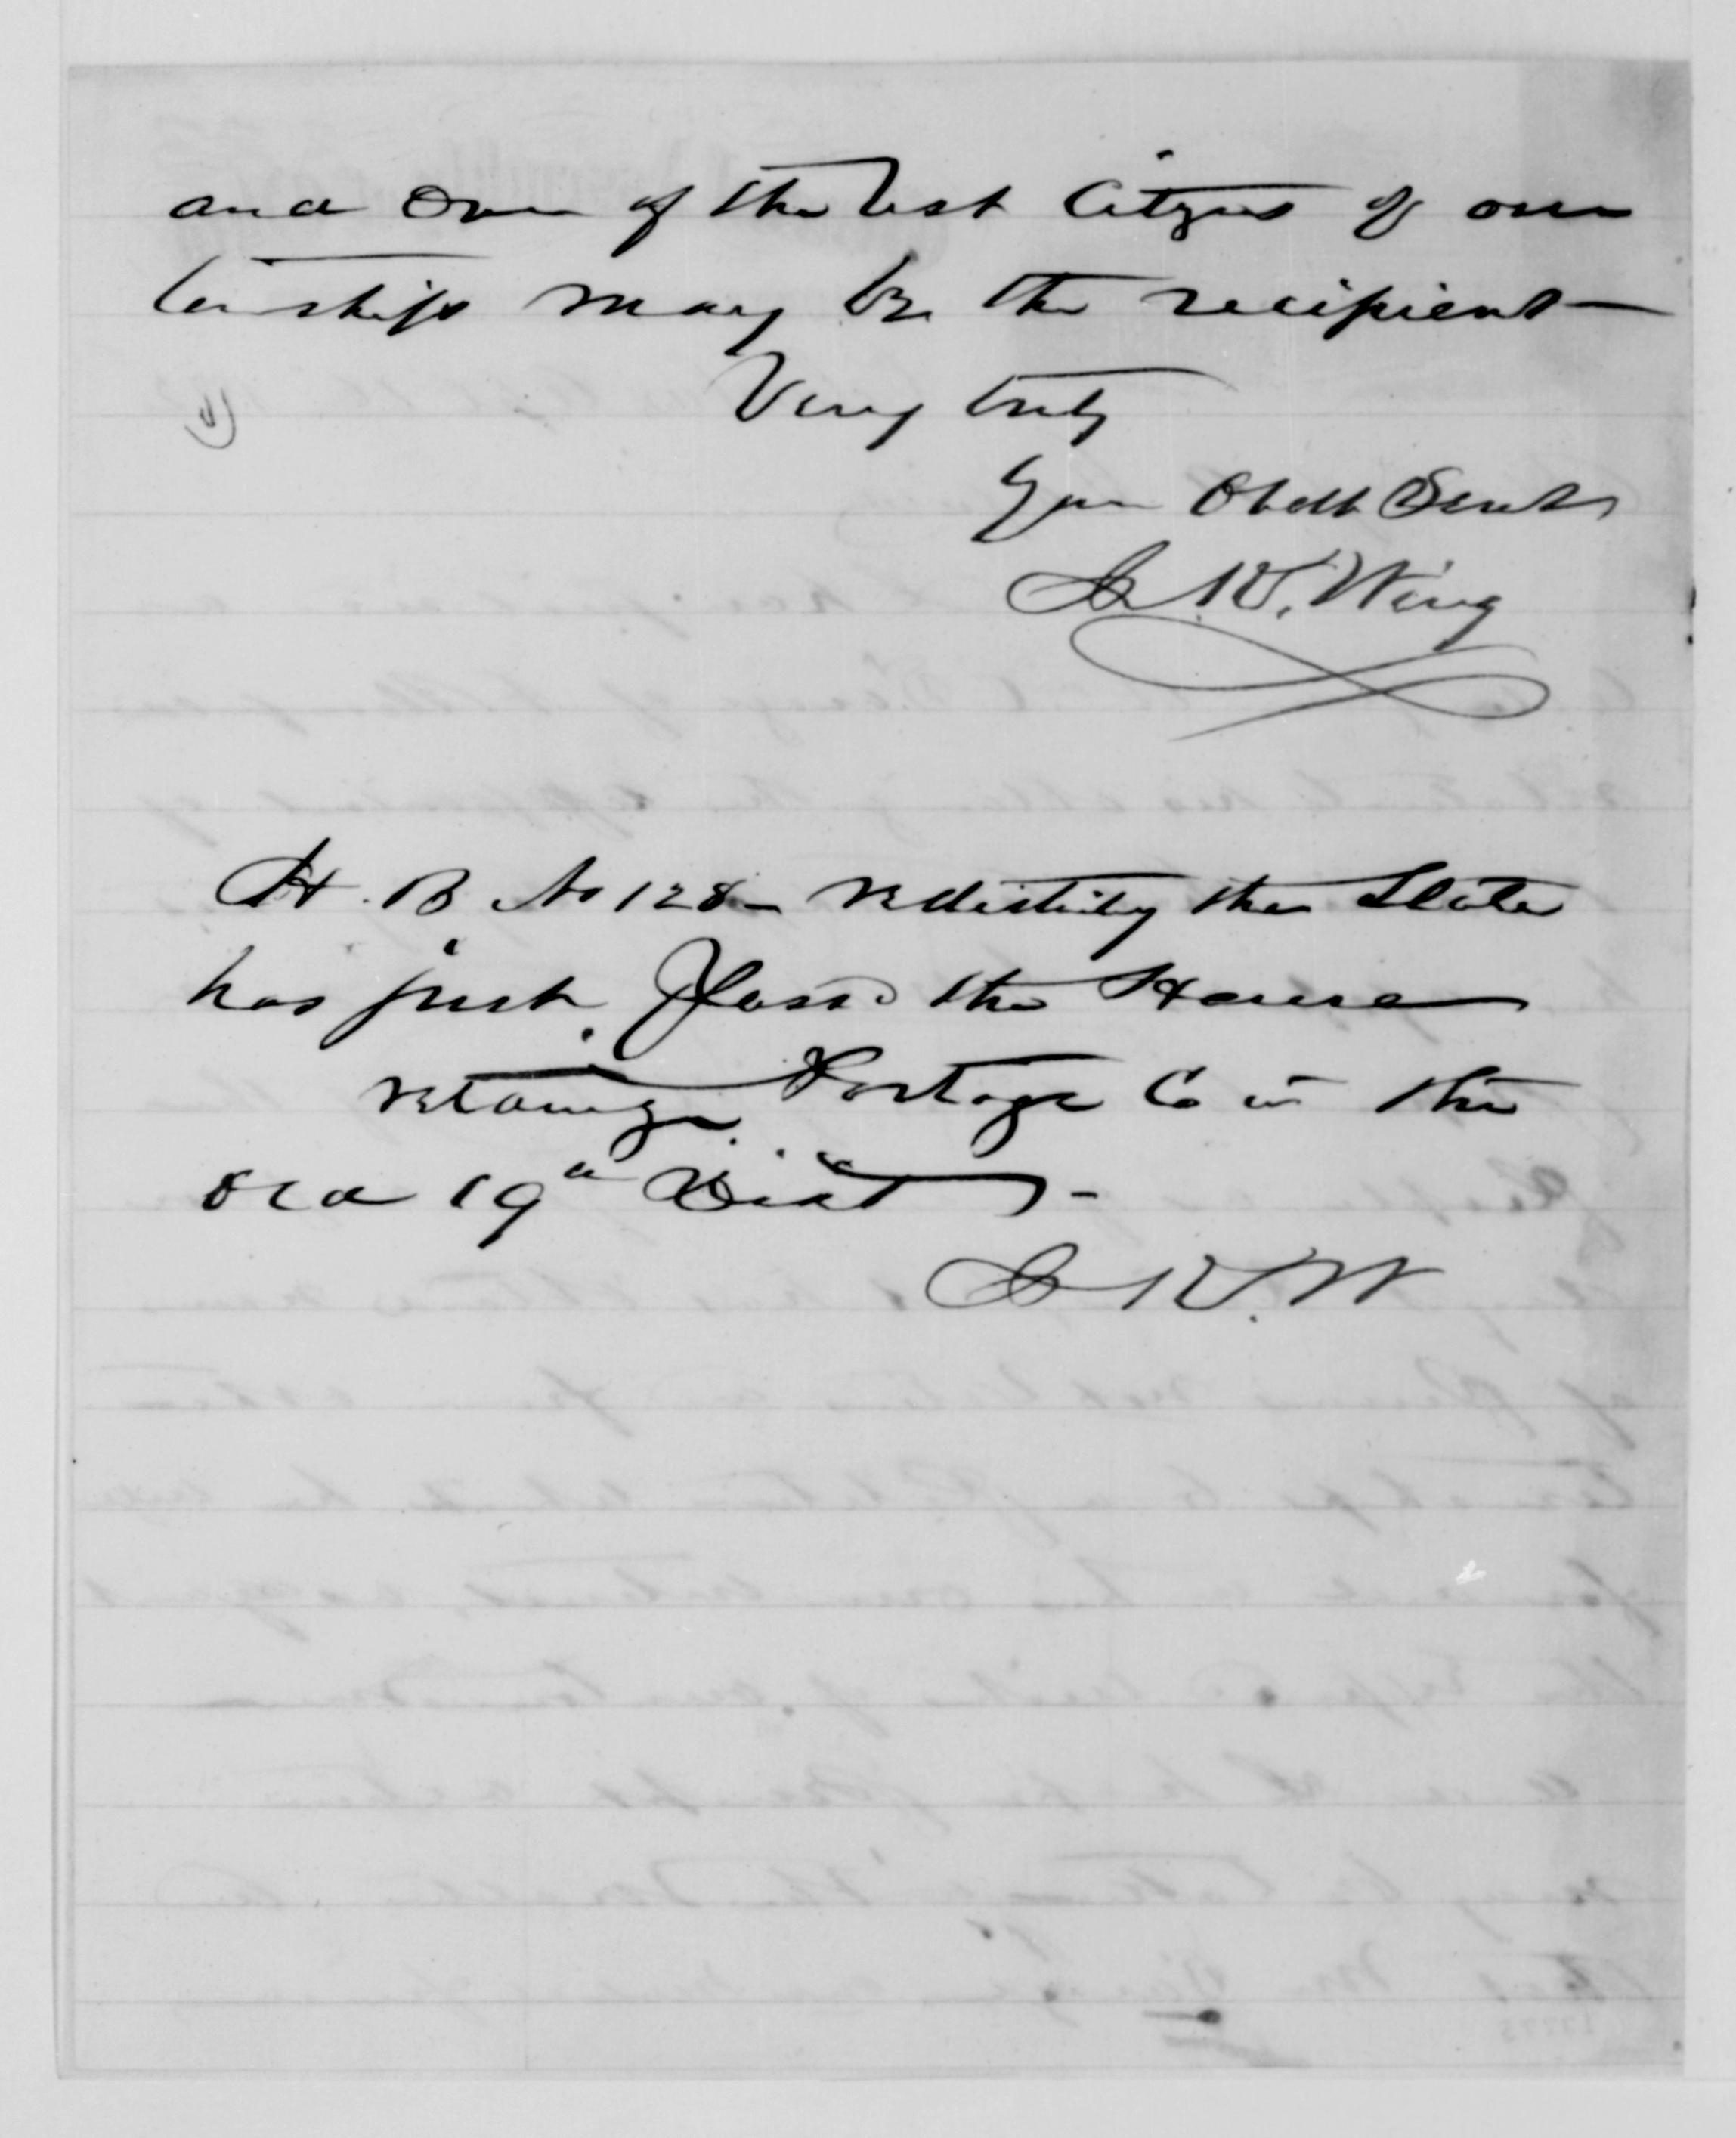 and One of the best Citizens of our
township may be the recipient—
Very truly
Your Obdt Servt
G. W. Wing
H. B. No 128 – redistricting the State
has just Passd the House
retaining Portage Co in the
old 19th Dist –
G. W. W